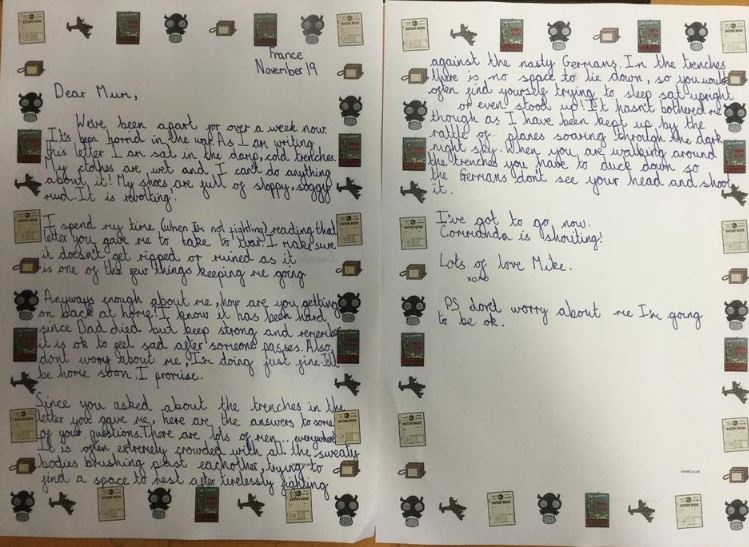 France
November 19
Dear Mum,
We've been apart for over a week now.
It's been horrid in the war. As I am writing
this letter I am sat in the damp, cold trenches.
My clothes are wet and I can't do anything
about it! My shoes are full of sloppy, soggy
mud. It is revolting.
I spend my time (when I'm not fighting) reading that
letter you gave me to take to war. I make sure
it doesn't get ripped or ruined as it
is one of the few things keeping me going
Anyways enough about me, how are you getting
on back at home? I know it has been hard
since Dad died but keep strong and remember
it is ok to feel sad after someone passes. Also,
dont worry about me, I'm doing just fine. I'll
be home soon. I promise.
Since you asked about the trenches in the
letter you gave me, here are the answers to some
of your questions. There are lots of men... everywhere!
It is often extremely crowded with all the sweaty
bodies brushing past eachother, trying to
find a space to rest after tirelessly fighting
against the nasty Germans. In the trenches
there is no space to lie down, so you would
often find yourself trying to sleep sat upright
or even stood up! It hasn't bothered me
though as I have been kept up by the
rattle of planes soaring through the dark
night sky. When you are walking around
the trenches you have to duck down so
the Germans don't see your head and shoot
it.
I've got to go now.
Commanda is shouting!
Lots of love Mike.
xoxo
PS dont worry about me I'm going
to be ok.